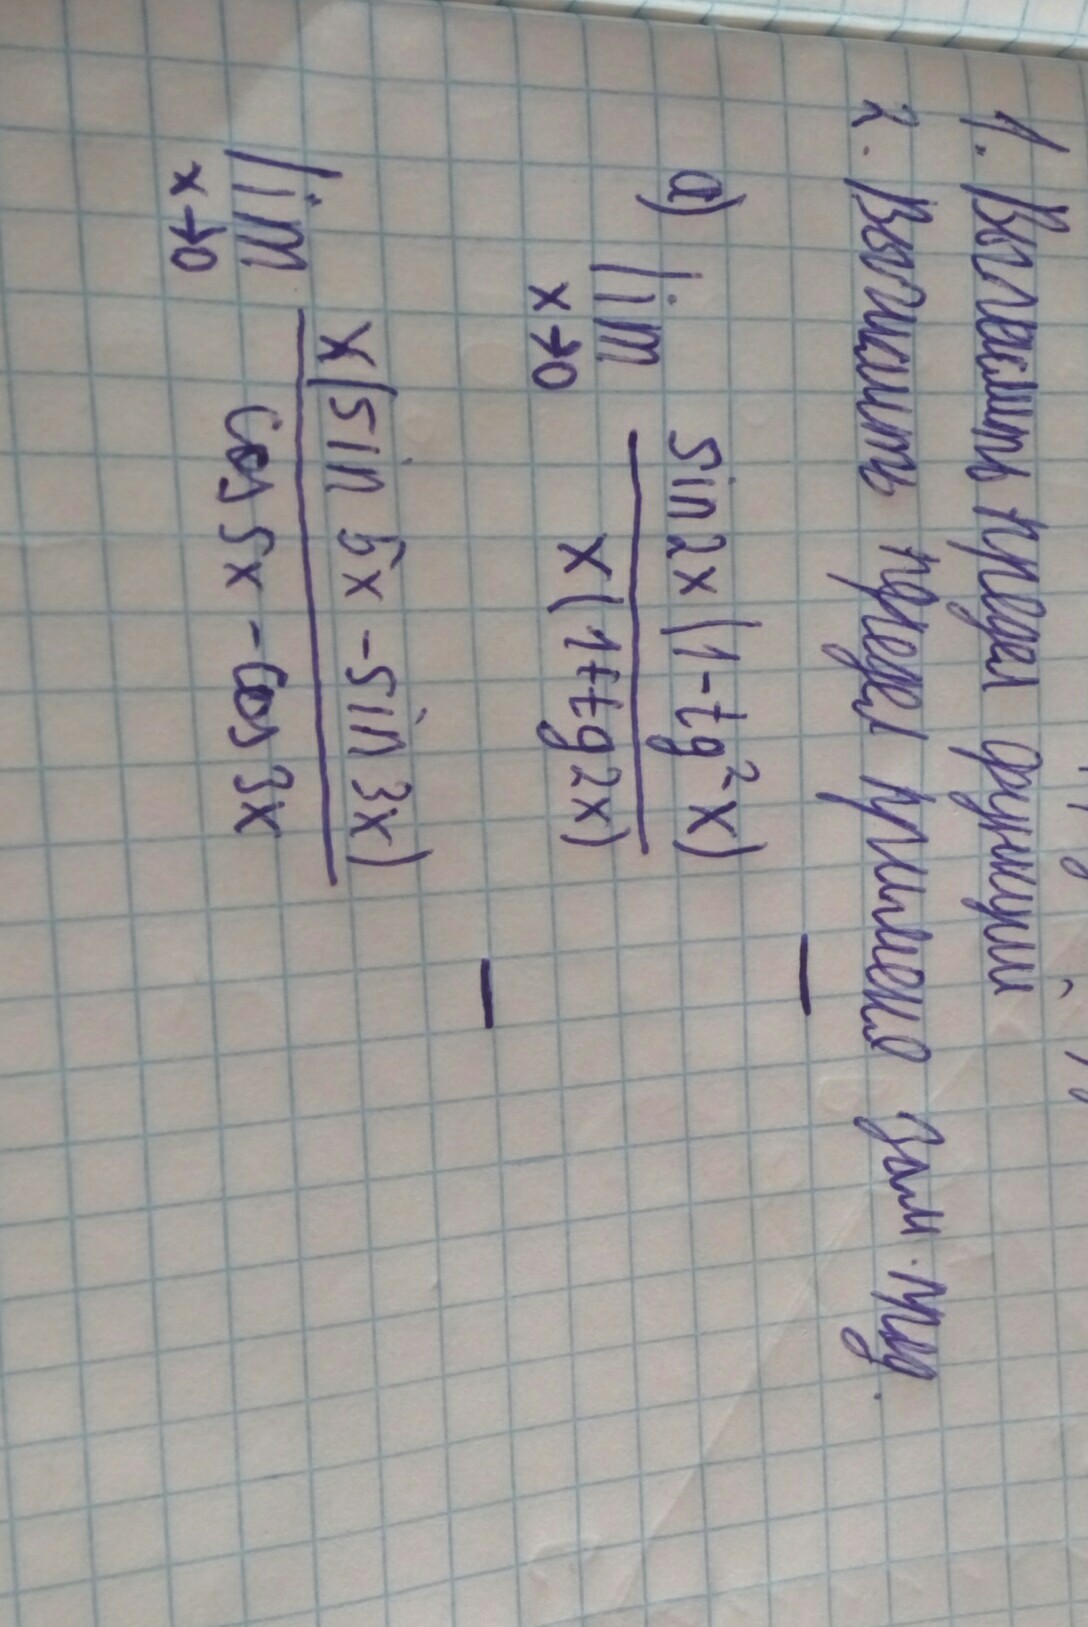 1. Вычислить предел функции
2. Вычислить предел применяя зам. пред.
a) lim x→0 sin 2x (1 - tg²x) / x (1 + tg 2x)
lim x→0 x (sin 5x - sin 3x) / cos 5x - cos 3x